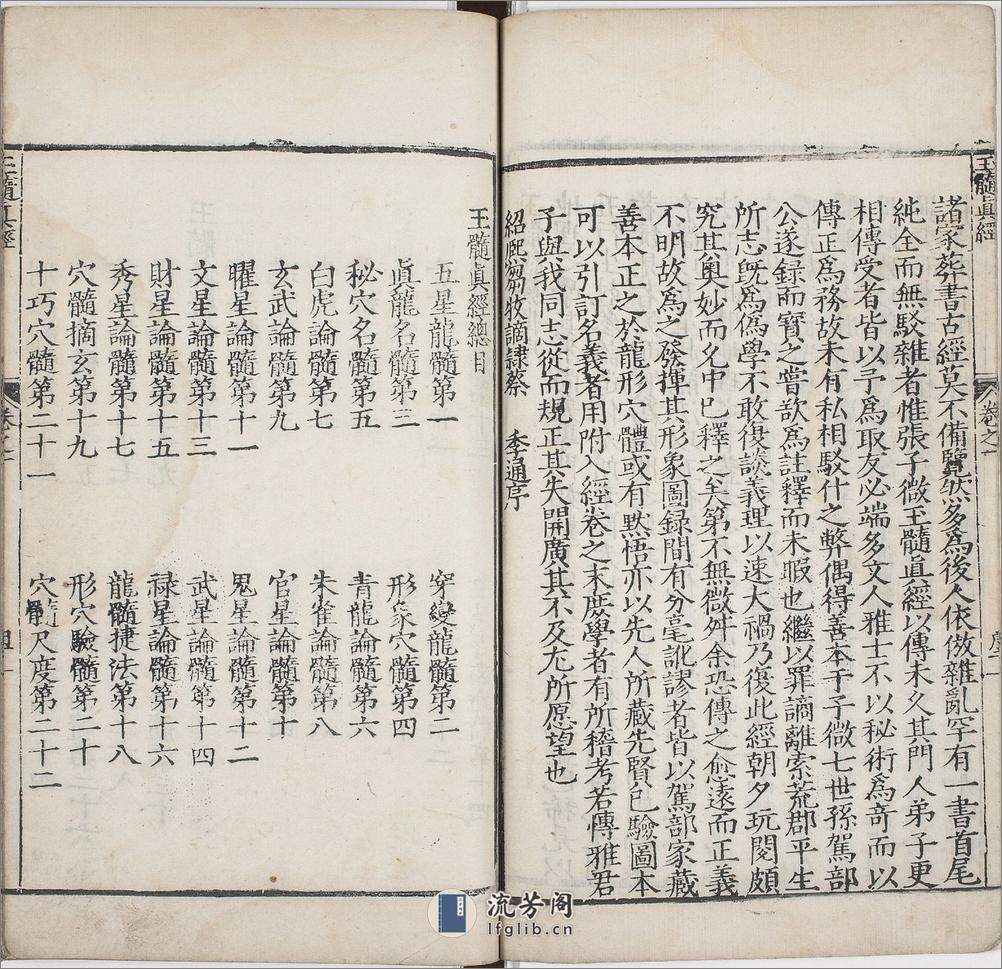 玉髓真經
卷之一
序二
諸家葬書古經莫不備覽然多爲後人依倣雜亂罕有一書首尾
純全而無駁雜者惟張子微玉髓眞經以傳未久其門人弟子更
相傳受者皆以予爲取友必端多文人雅士不以秘術爲奇而以
傳正爲務故未有私相駁什之弊偶得善本于子微七世孫駕部
公遂録而寳之嘗欲爲註釋而未暇也繼以罪謫離索荒郡平生
所志旣爲僞學不敢復談義理以速大禍乃復此經朝夕玩閱頗
究其奥妙而名中巳釋之矣第不無微舛余恐傳之愈遠而正義
不明故爲之發揮其形象圖録間有分毫訛謬者皆以駕部家藏
善本正之於龍形穴體或有默悟亦以先人所藏先賢已驗圖本
可以引訂名義者用附入經卷之末庶學者有所稽考若愽雅君
子與我同志從而規正其失開廣其不及尤所愿望也
紹熙芻牧謫隷蔡 季通序
玉髓眞經總目
五星龍髓第一 穿變龍髓第二
眞龍名髓第三 形象穴髓第四
秘穴名髓第五 青龍論髓第六
白虎論髓第七 朱雀論髓第八
玄武論髓第九 官星論髓第十
曜星論髓第十一 鬼星論髓第十二
文星論髓第十三 武星論髓第十四
財星論髓第十五 祿星論髓第十六
秀星論髓第十七 龍髓捷法第十八
穴髓摘玄第十九 形穴驗髓第二十
十巧穴髓第二十一 穴髓尺度第二十二
玉髓真經
卷之一
流芳阁
lfglib.cn